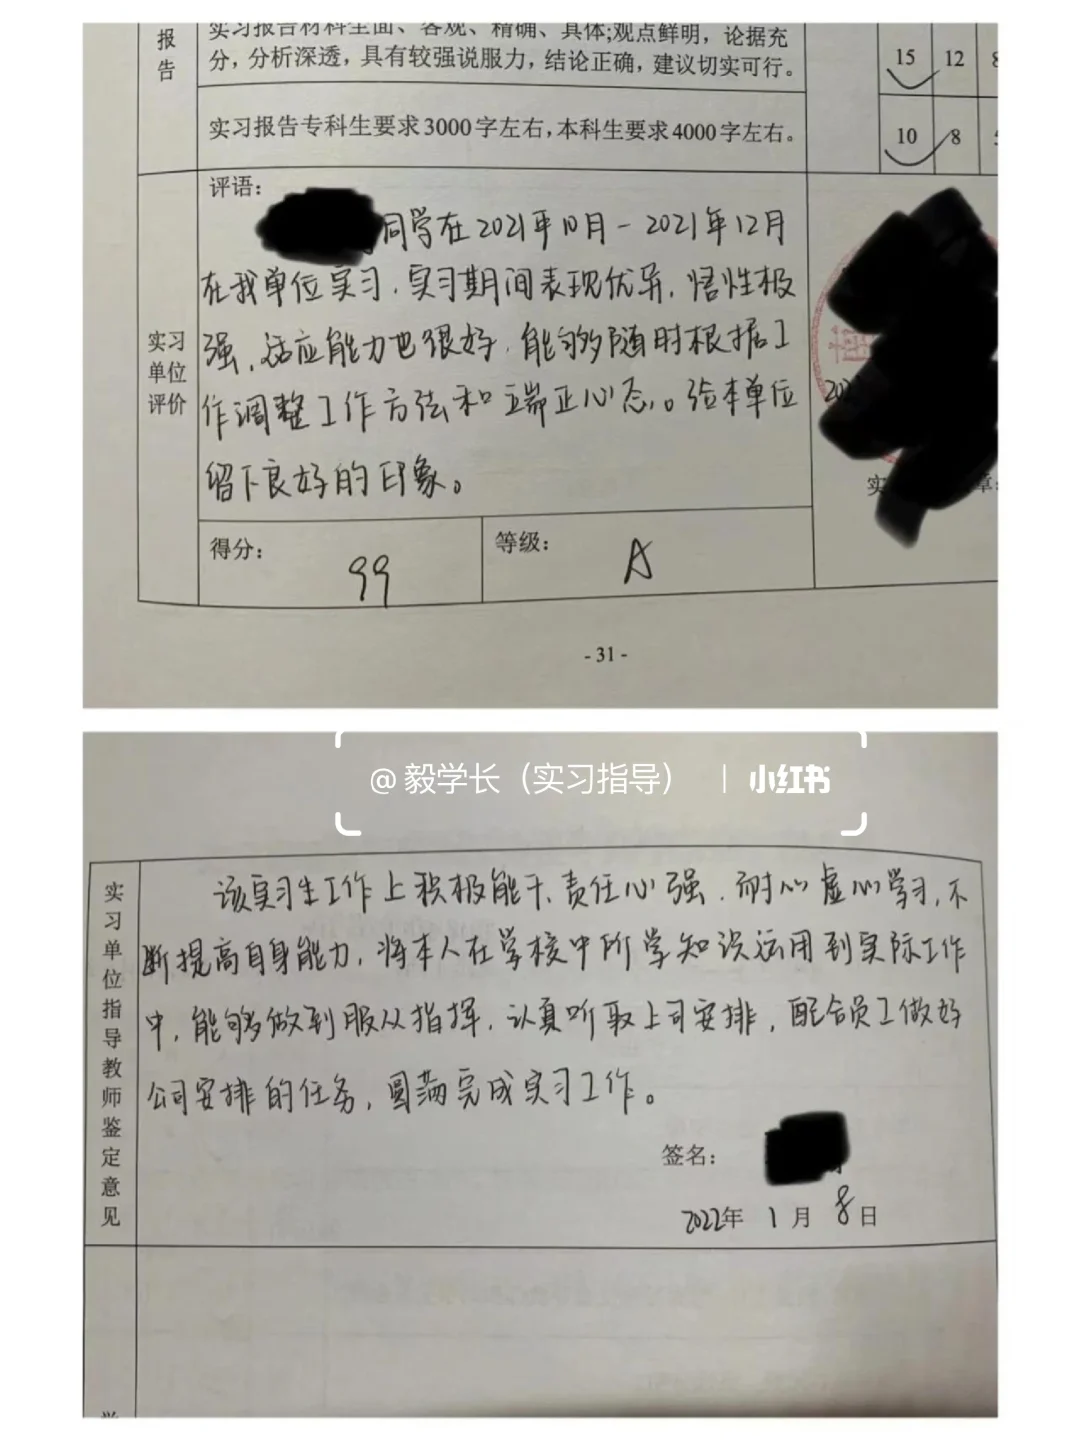 报告
实习报告材料全面、客观、精确、具体;观点鲜明，论据充
分，分析深透，具有较强说服力，结论正确，建议切实可行。
15 12
实习报告专科生要求3000字左右，本科生要求4000字左右。
10 8
实习单位评价
评语：
同学在2021年10月－2021年12月
在我单位实习，实习期间表现优异，悟性极
强，适应能力也很好，能够随时根据工
作调整工作方法和端正心态。给本单位
留下良好的印象。
202
实
章：
得分：
99
等级：
A
- 31 -
@毅学长（实习指导） | 小红书
实习单位指导教师鉴定意见
该实习生工作上积极能干，责任心强，耐心虚心学习，不
断提高自身能力，将本人在学校中所学知识运用到实际工作
中，能够做到服从指挥，认真听取上司安排，配合员工做好
公司安排的任务，圆满完成实习工作。
签名：
2022年 1月 8日